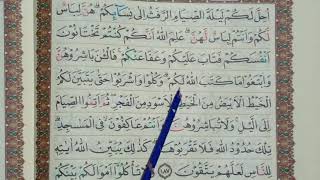 أُحِلَّ لَكُمْ لَيْلَةَ الصِّيَامِ الرَّفَثُ إِلَىٰ نِسَائِكُمْ هُنَّ لِبَاسٌ
لَكُمْ وَأَنْتُمْ لِبَاسٌ لَهُنَّ عَلِمَ اللَّهُ أَنَّكُمْ كُنْتُمْ تَخْتَانُونَ
أَنْفُسَكُمْ فَتَابَ عَلَيْكُمْ وَعَفَا عَنْكُمْ فَالْآنَ بَاشِرُوهُنَّ
وَابْتَغُوا مَا كَتَبَ اللَّهُ لَكُمْ وَكُلُوا وَاشْرَبُوا حَتَّىٰ يَتَبَيَّنَ لَكُمُ
الْخَيْطُ الْأَبْيَضُ مِنَ الْخَيْطِ الْأَسْوَدِ مِنَ الْفَجْرِ ثُمَّ أَتِمُّوا الصِّيَامَ
إِلَى اللَّيْلِ وَلَا تُبَاشِرُوهُنَّ وَأَنْتُمْ عَاكِفُونَ فِي الْمَسَاجِدِ
تِلْكَ حُدُودُ اللَّهِ فَلَا تَقْرَبُوهَا كَذَٰلِكَ يُبَيِّنُ اللَّهُ آيَاتِهِ
لِلنَّاسِ لَعَلَّهُمْ يَتَّقُونَ ١٨٧ وَلَا تَأْكُلُوا أَمْوَالَكُمْ بَيْنَكُمْ